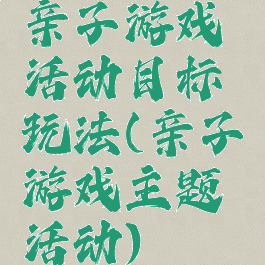 亲子游戏
活动目标
玩法(亲子
游戏主题
活动)